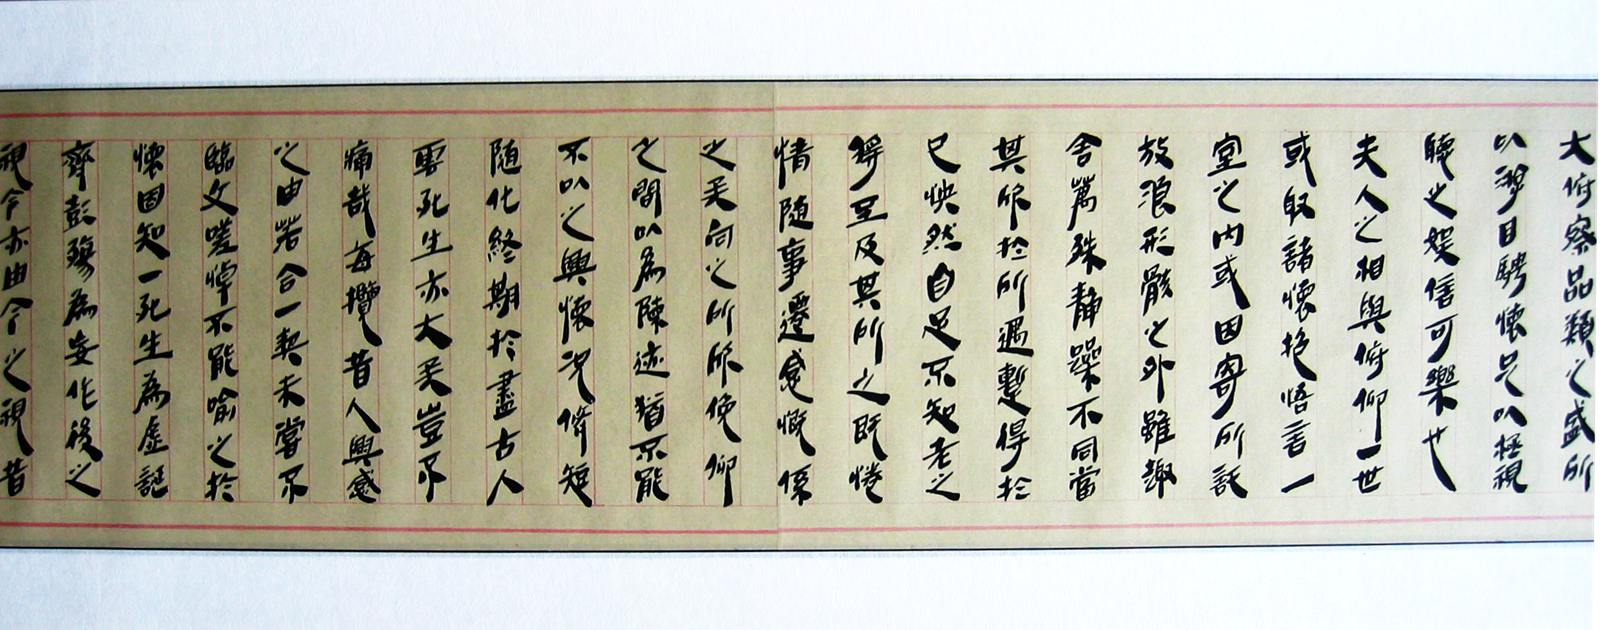 大俯察品類之盛所
以游目騁懷足以極視
聽之娛信可樂也
夫人之相與俯仰一世
或取諸懷抱悟言一
室之內或因寄所託
放浪形骸之外雖趣
舍萬殊靜躁不同當
其欣於所遇暫得於
己怏然自足不知老之
將至及其所之既惓
情隨事遷感慨係
之矣向之所欣俛仰
之間以為陳迹猶不能
不以之興懷況脩短
隨化終期於盡古人
雲死生亦大矣豈不
痛哉每攬昔人興感
之由若合一契未嘗不
臨文嗟悼不能喻之於
懷固知一死生為虛誕
齊彭殤為妄作後之
視今亦由今之視昔